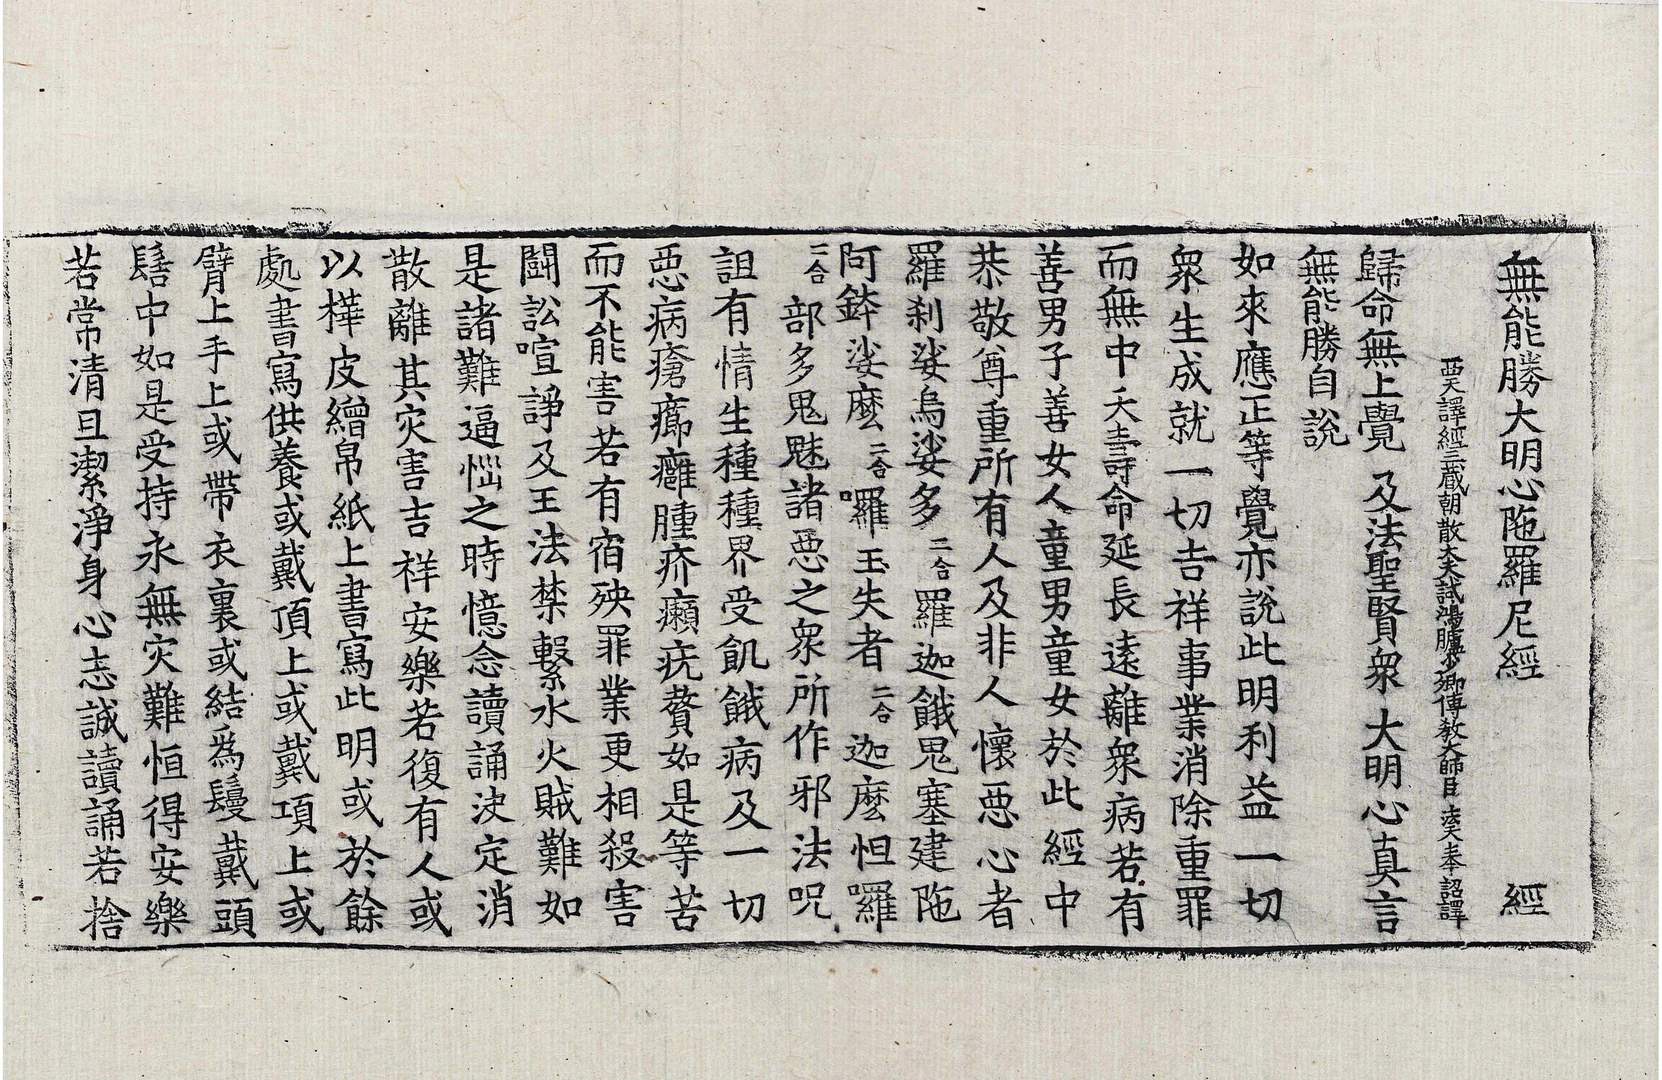 無能勝大明心陁羅尼經 經
西天譯經三藏朝散大夫試鴻臚少卿傳教大師臣 法天奉 詔譯
歸命無上覺 及法聖賢衆 大明心真言
無能勝自說
如來應正等覺亦說此明利益一切
衆生成就一切吉祥事業消除重罪
而無中夭壽命延長遠離衆病若有
善男子善女人童男童女於此經中
恭敬尊重所有人及非人懷惡心者
羅刹娑烏娑多二合羅迦餓鬼塞建陁
阿鉢娑麼二合囉玉失者二合迦麼怛囉
二合部多鬼魅諸惡之衆所作邪法呪
詛有情生種種界受飢餓病及一切
惡病瘡癤癰腫疥癩疣贅如是等苦
而不能害若有宿殃罪業更相殺害
鬪訟喧諍及王法禁繫水火賊難如
是諸難逼惱之時憶念讀誦決定消
散離其灾害吉祥安樂若復有人或
以樺皮繒帛紙上書寫此明或於餘
處書寫供養或戴頂上或戴項上或
臂上手上或帶衣裏或結為鬘戴頭
髻中如是受持永無灾難恒得安樂
若常清旦潔淨身心志誠讀誦若捨